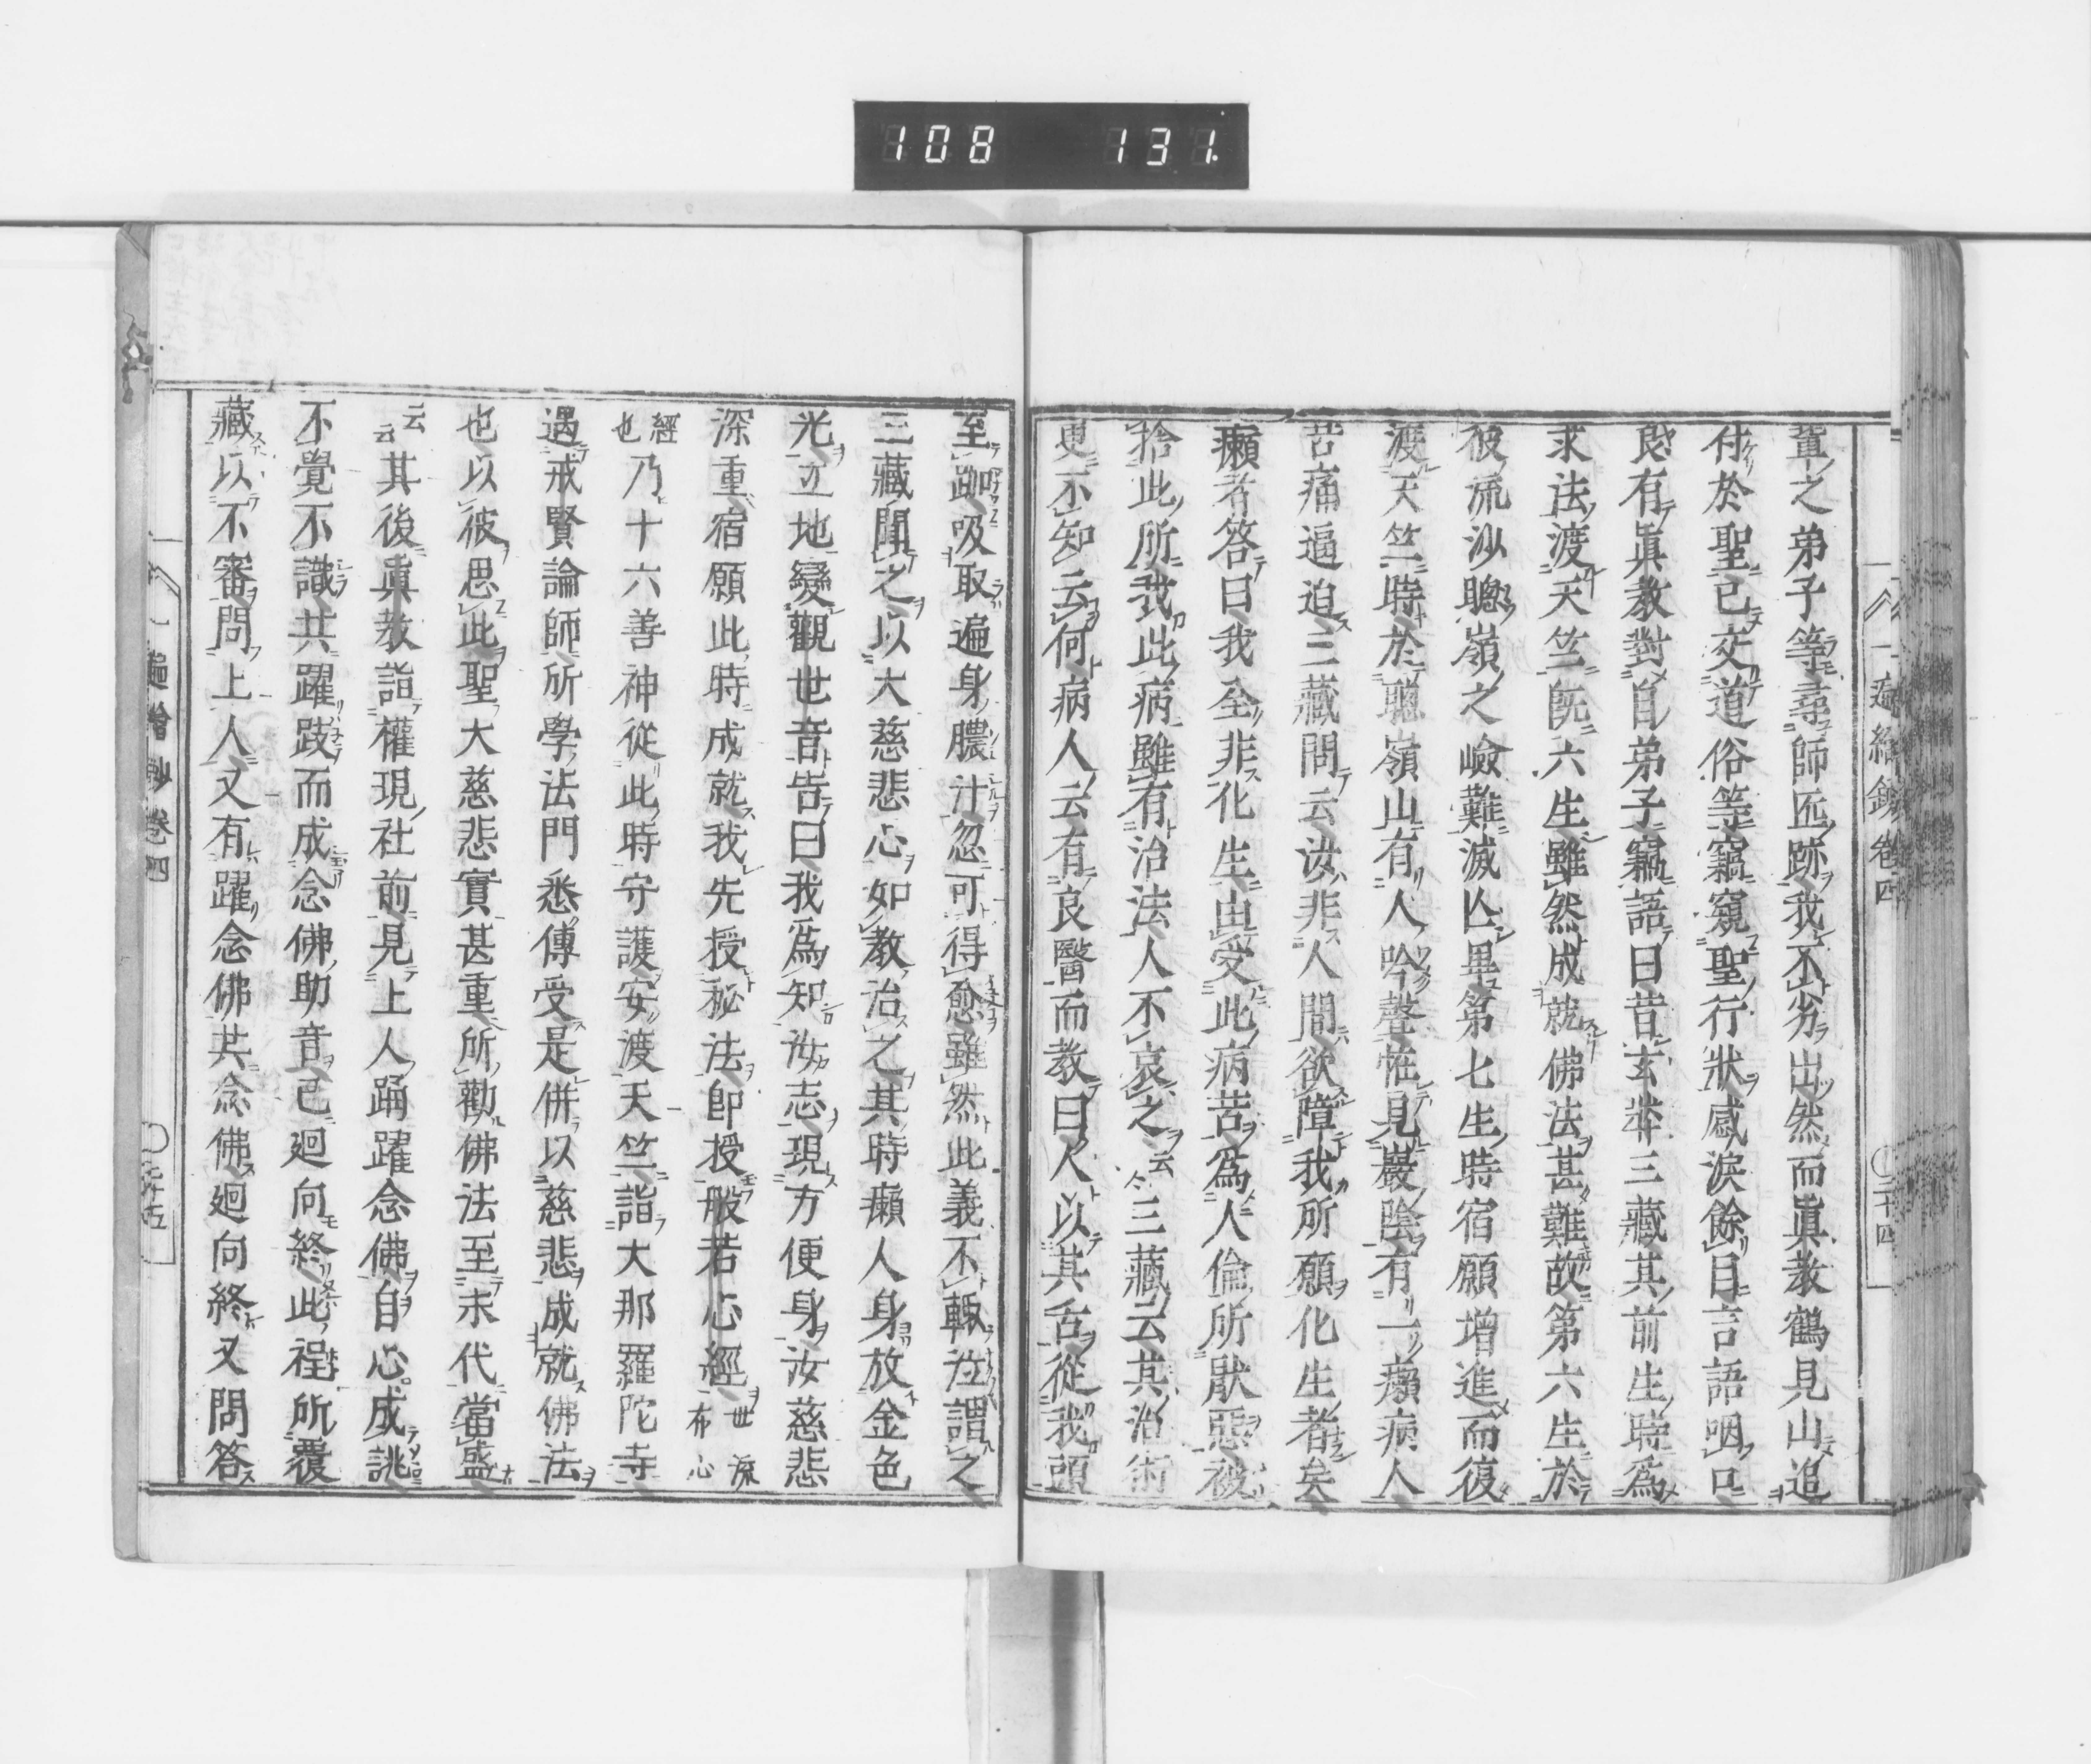 108 131
一遍繪鈔卷四 〇三十四
輦之弟子等尋師匠跡我不劣出然而眞教鶴見山追
付於聖已交道俗等竊窺聖行狀感淚餘目言語咽口
良有眞教對自弟子竊語曰昔玄弉三藏其前生時爲
求法渡天竺既六生雖然成就佛法甚難故第六生於
彼流沙聰嶺之嶮難滅亾畢第七生時宿願增進而復
渡天竺時於聰嶺山有人吟聲恠見巖陰有一癩病人
苦痛逼迫三藏問云汝非人間欲障我所願化生者矣
癩者答曰我全非化生由受此病苦爲人倫所猒惡被
捨此所我此病雖有治法人不哀之云云三藏云其治術
更不知云何病人云有良醫而教曰人以其舌從我頭
至踟吸取遍身膿汁忽可得愈雖然此義不輙泣謂之
三藏聞之以大慈悲心如教治之其時癩人身放金色
光立地變觀世音告曰我爲知汝志現方便身汝慈悲
深重宿願此時成就我先授秘法卽授般若心經世流布心
經也乃十六善神從此時守護安渡天竺詣大那羅陀寺
遇戒賢論師所學法門悉傳受是併以慈悲成就佛法
也以彼思此聖大慈悲實甚重所勸佛法至末代當盛
云云其後眞教詣權現社前見上人踊躍念佛自心成誂
不覺不識共躍跂而成念佛助音已廻向終此程所覆
藏以不審問上人又有躍念佛共念佛廻向終又問答
一遍繪鈔卷四 〇三十五